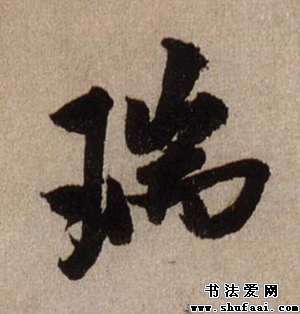 瑞
书法爱网
www.shufaai.com